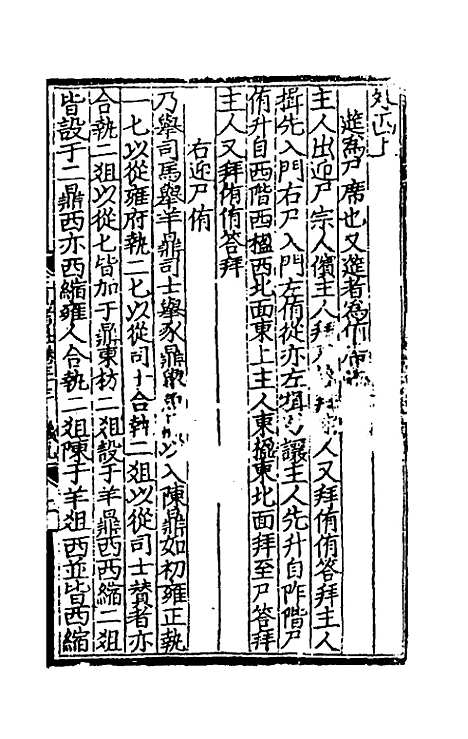 筵爲尸席也又筵者爲侑席
主人出迎尸宗人儐主人拜人又拜侑侑答拜主人
揖先入門右尸入門左侑從亦左揖讓主人先升自阼階尸
侑升自西階西楹西北面東上主人東楹東北面拜至尸答拜
主人又拜侑侑答拜
右迎尸侑
乃舉司馬舉羊鼎司士舉豕鼎舉以入陳鼎如初雍正執
一匕以從雍府執二匕以從司士合執二俎以從司士贊者亦
合執二俎以從匕皆加于鼎東枋二俎設于羊鼎西西縮二俎
皆設于二鼎西亦西縮雍人合執二俎陳于羊俎西並皆西縮